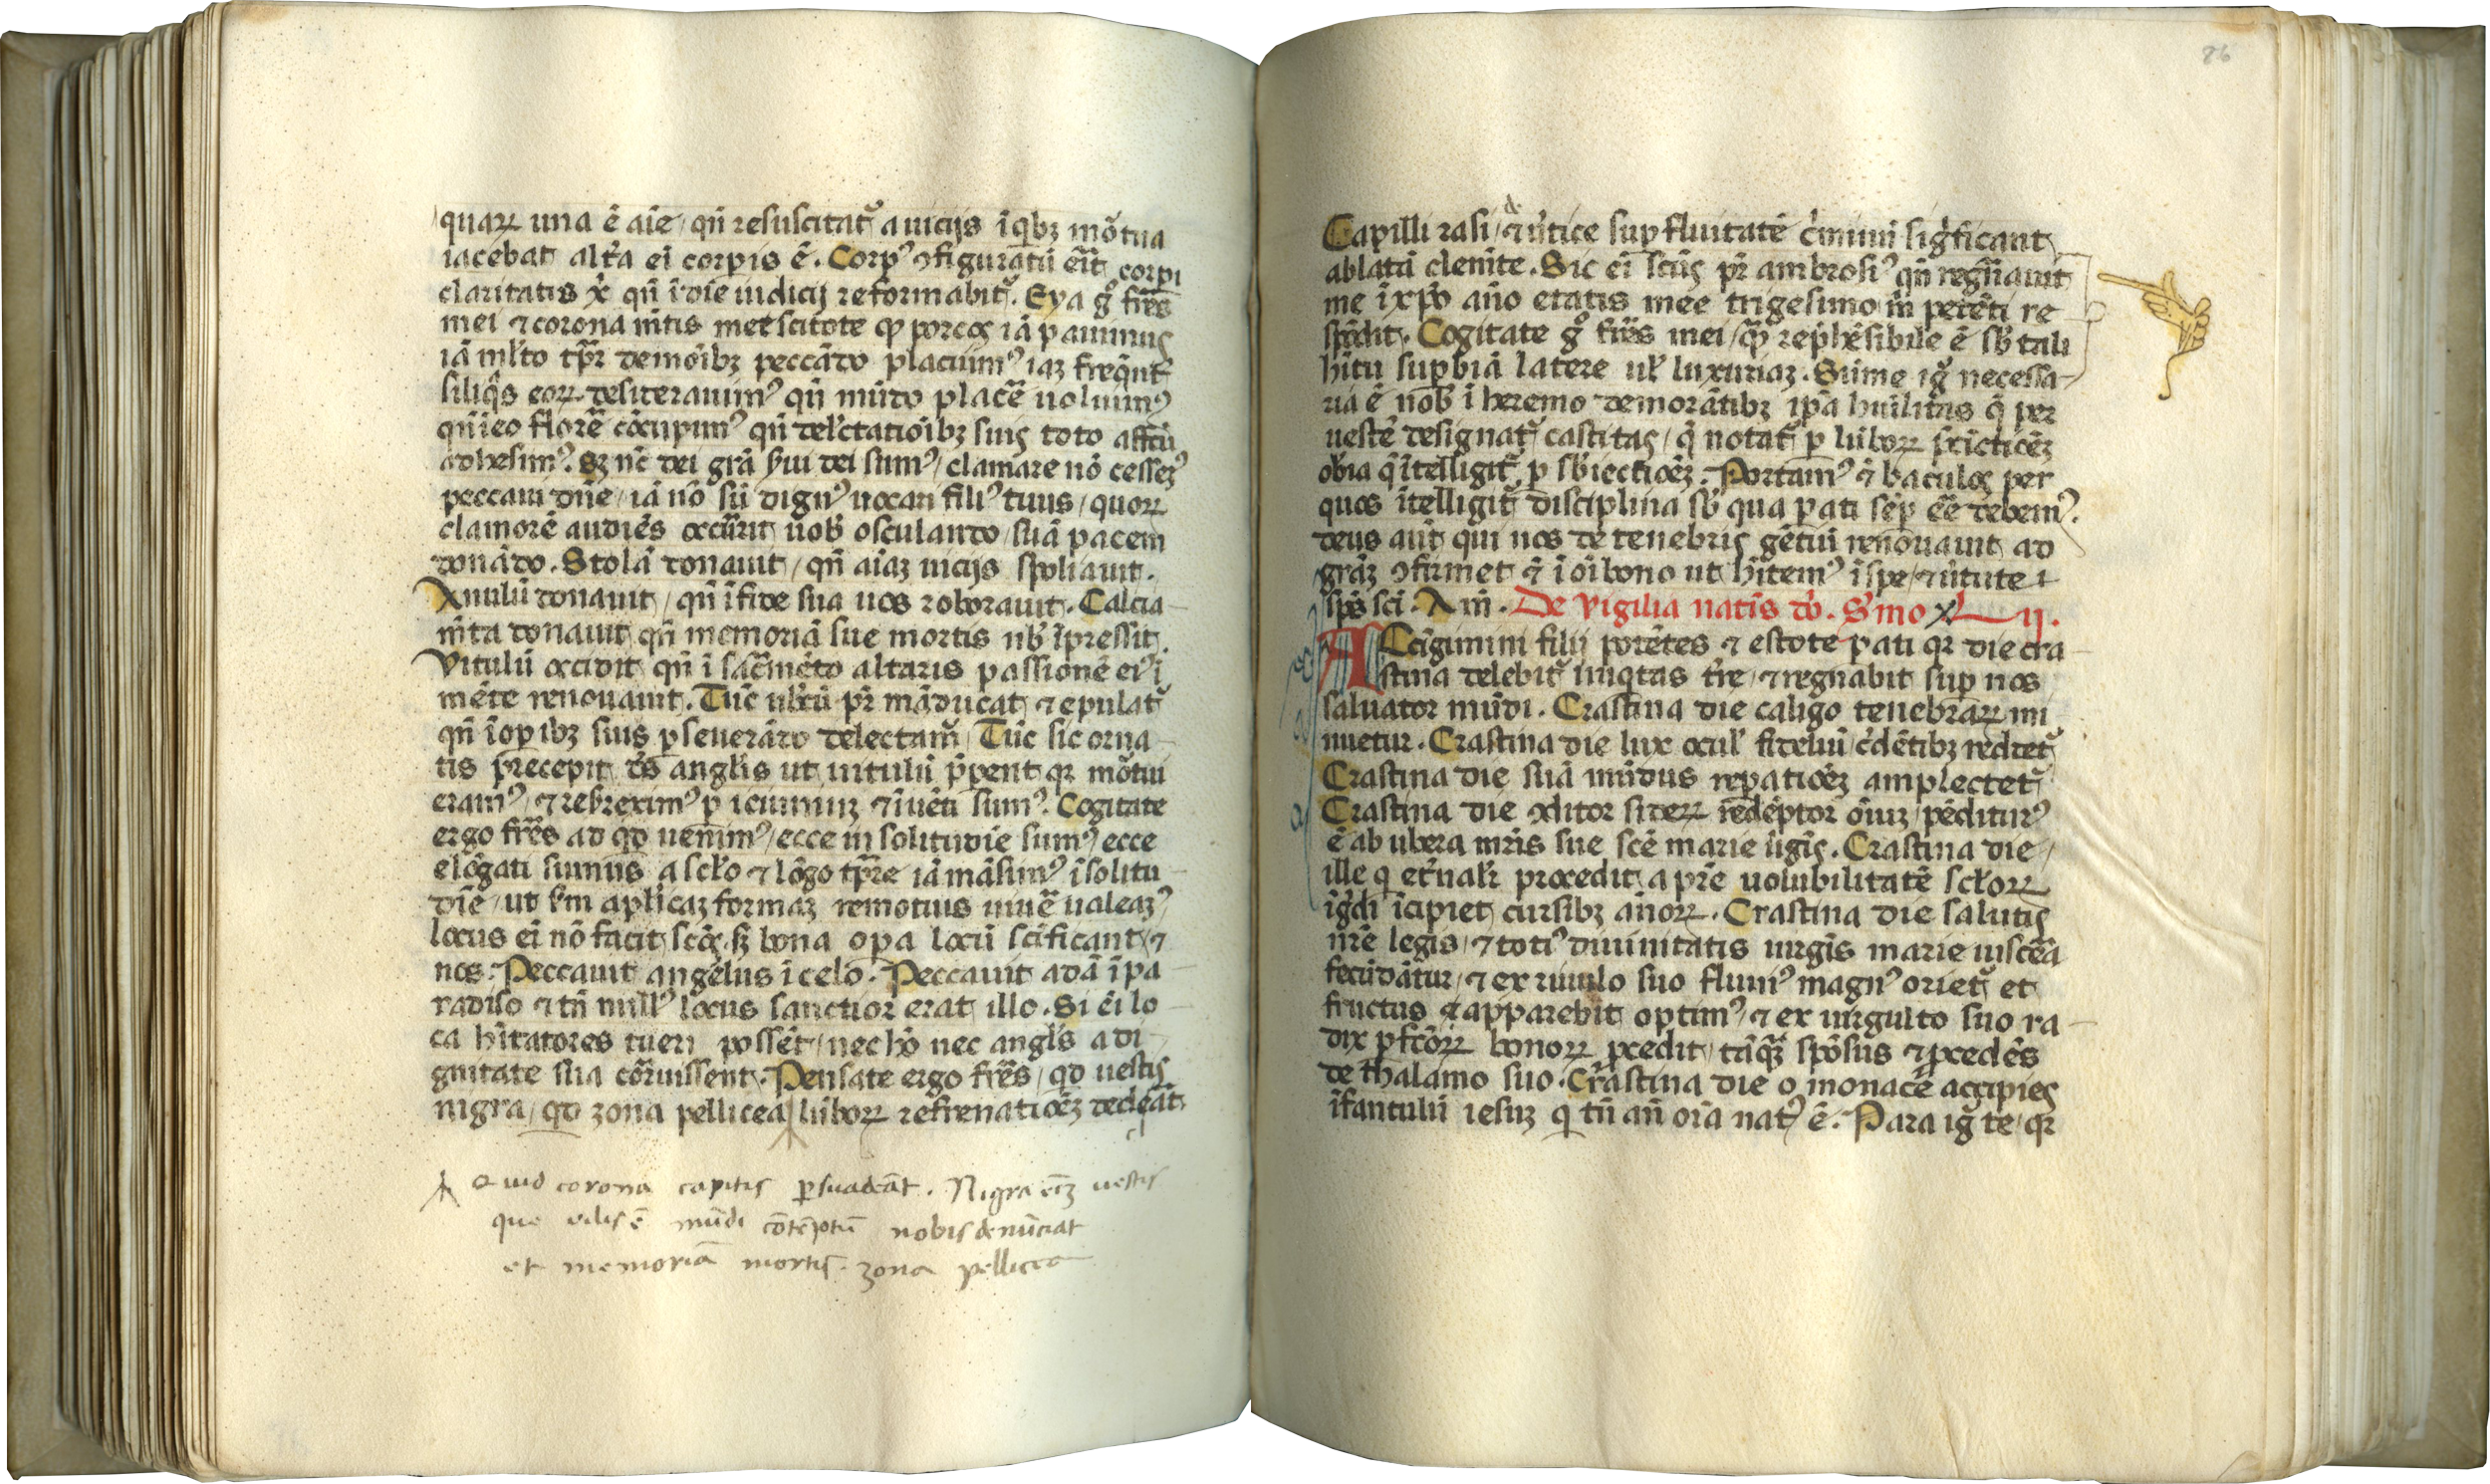 quaꝝ una ē aīe / qn̄ resuscitat᷑ a uicijs ī qͥbꝫ mōtua
iacebat alt̉a eī corpis ē . Corpꝰ ꝯfiguratū erit corpi
claritatis xͥ qn̄ ī die iudicij reformabit᷑ . Eya gͦ fr̄es
mei ⁊ corona met scitote ꝙ porcos iā pauimus
iā ml̓to tp̄r demoībꝫ peccādo placuimꝰ iaꝫ freqn̄t᷑
siliqͣs eoꝝ desiderauimꝰ qn̄ mūdo placē̄ uoluimꝰ
qn̄ ī eo florē̄ cōcupiuimꝰ qn̄ delectatiōibꝫ suis toto affc̄tu
adhesimꝰ . Sꝫ nc̄ dei grā sui dei sumꝰ / clamare nō cessemꝰ
peccaui dn̄e / iā nō sū dignꝰ uocari filiꝰ tuus / quoꝝ
clamorē audiēs occurrit uob̄ osculando / suā pacem
donādo . Stolā donauit / qn̄ aīaꝫ uicijs spoliauit .
Anulū donauit / qn̄ ī fide sua uos roborauit . Calcia
m̄ta donauit qn̄ memoriā sue mortis ub̄ īpressit .
Vitulū occidit qn̄ ī sac̄mēto altaris passionē eiꝰ ī
mēte renouauit . Tūc ub̄cū pr̄ māducat ⁊ epulat᷑
qn̄ ī opibꝫ suis ꝑseuerādo delectam᷑ / Tūc sic orna
tis precepit ds̄ angl̓is ut uitulū p̄pent qꝛ mōtui
eramꝰ / ⁊ rebreximꝰ ꝑ ieiuniuꝫ ⁊ īuēti sumꝰ . Cogitate
ergo fr̄es ad qd uenimꝰ / ecce in solitudīe sumꝰ / ecce
elōgati sumus a sc̄lo ⁊ lōgo tp̄re iā māsimꝰ ī solitu
dīe / ut s̄m apl̓icaꝫ formaꝫ remotius uiuē̄ ualeamꝰ
locus eī nō facit sc̄os sꝫ bona opa locū sc̄ificant ⁊
nos . Peccauit angelus ī celo . Peccauit adā ī pa
radiso ⁊ tn̄ nullꝰ locus sanctior erat illo . Si eī lo
ca hītatores tueri possēt / nec hō nec angl̓s a di
gnitate sua corruissent . Pensate ergo fr̄es / qd uestis
nigra / qd zona pellicea lūboꝝ refrenatiōeꝫ decleāt
Quid corona capitis ꝑsuadeāt . Nigra eīꝫ uestis
que uilis ē mūdi cōtēptū nobis denūciat
et memoriā mortis . zona pellicea
86
Capilli rasi / ⁊ ī u̓tice supfluitatē c̓minū sigͥficant
ablatā clemīte . Sic eī sc̄us pr̄ ambrosiꝰ qn̄ regn̄auit
me ī xp̄o año etatis mee trigesimo m̄ petēti re
spōdit . Cogitate gͦ fr̄es mei / qͣ rep̓hēsibile ē sb̄ tali
hītu supbiā latere ul̓ luxuriaꝫ . Sūme igͥ necessa
ria ē nob̄ ī heremo demorātibꝫ ip̄a huīlitas q̄ per
uestē designat᷑ castitas / q̄ notat᷑ ꝑ lūboꝝ stͥctiōeꝫ
obīa q̄ ītelligit᷑ ꝑ sb̄iectiōeꝫ . Portamꝰ ⁊ baculos per
quos ītelligit᷑ disciplina sb̄ qua pati sēp eē̄ debemꝰ .
deus aūt qui nos de tenebris gētiū renouauit ad
grāꝫ ꝯfirmet ⁊ ī oī bono ut hītemꝰ ī spe / ⁊ u̓tute
sp̄s sc̄i . Am̄ . De vigilia natis dō . S̓mo xlii .
Accīgimini filij potētes ⁊ estote pati qꝛ die cra
stina delebit᷑ iniqͥtas t̓re / ⁊ regnabit sup nos
saluator mūdi . Crastina die caligo tenebraꝝ mi
nuetur . Crastina die lux ocul̓ fideliū c̓dētibꝫ reddet᷑
Crastina die suā mūdus repatiōeꝫ amplectet᷑
Crastina die ꝯditor sideꝝ redēptor oīuꝫ / pēditurꝰ
ē ab ubera mr̄is sue sc̄e marie u̓gīs . Crastina die
ille q et̓nal̓r procedit a pr̄e uolubilitatē sc̄loꝝ
īgͥdi īcipiet cursibꝫ annoꝝ . Crastina die salutis
nr̄e legis / ⁊ totiꝰ diuinitatis uirgīs marie uiscera
fecūdātur / ⁊ ex riuulo suo fluuiꝰ magnꝰ oriet᷑ et
fructus ⁊ apparebit optimꝰ / ⁊ ex uirgulto suo ra
dix ꝑfc̄oꝝ bonoꝝ ꝓcedit / tāqͣꝫ spōsus ⁊ ꝓcedēs
de thalamo suo . Crastina die o monace accipies
īfantulū iesuꝫ q tn̄ an̄ ora natꝰ ē . Para igͥ te / qꝛ